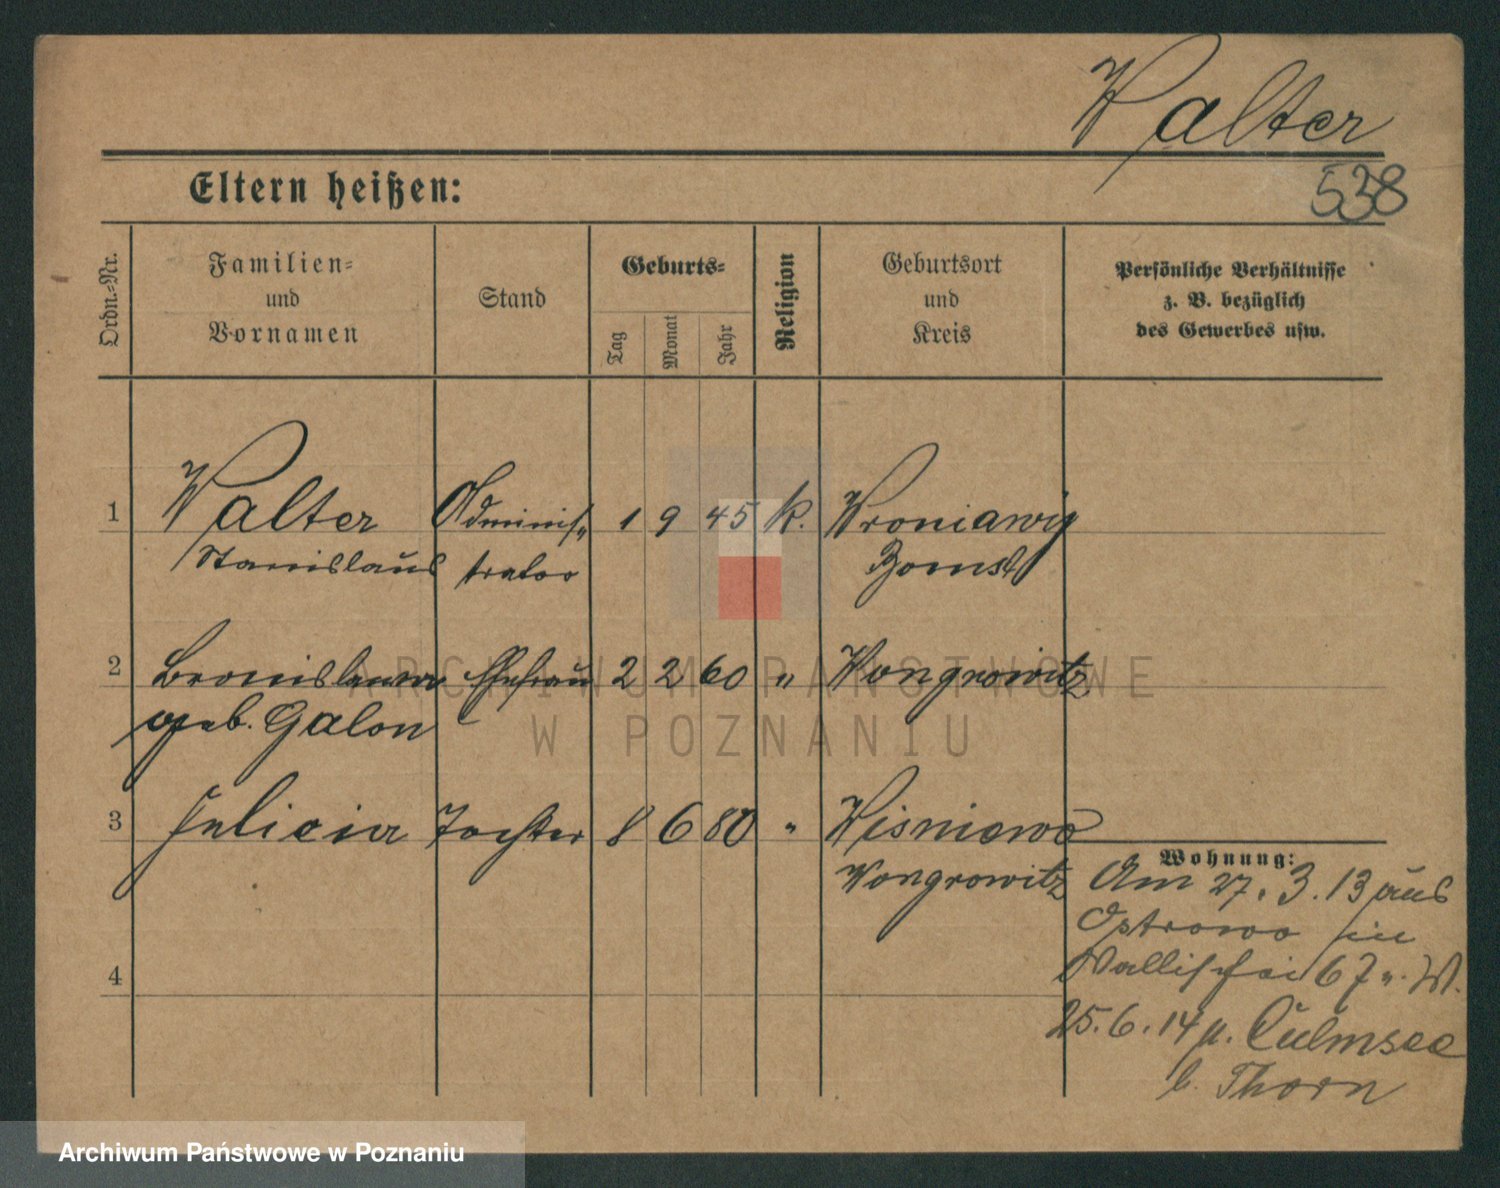 Walter
538
Eltern heißen:
Ordn.-Nr.
Familien-
und
Vornamen
Stand
Geburts-
Tag
Monat
Jahr
Religion
Geburtsort
und
Kreis
Persönliche Verhältnisse
z. B. bezüglich
des Gewerbes usw.
1 Walter Adminis- 1 9 45 k. Wroniawy
Stanislaus trator Bomst
2 Bronislawa Ehefrau 2 2 60 " Wongrowitz
geb. Galon
3 Felicia Tochter 8 6 80 " Wisniewo
Wongrowitz
4
Wohnung:
Am 27. 3. 13 aus
Ostrowo in
Wallischei 67 W.
25. 6. 14 n. Culmsee
b. Thorn
ARCHIWUM PAŃSTWOWE
W POZNANIU
Archiwum Państwowe w Poznaniu